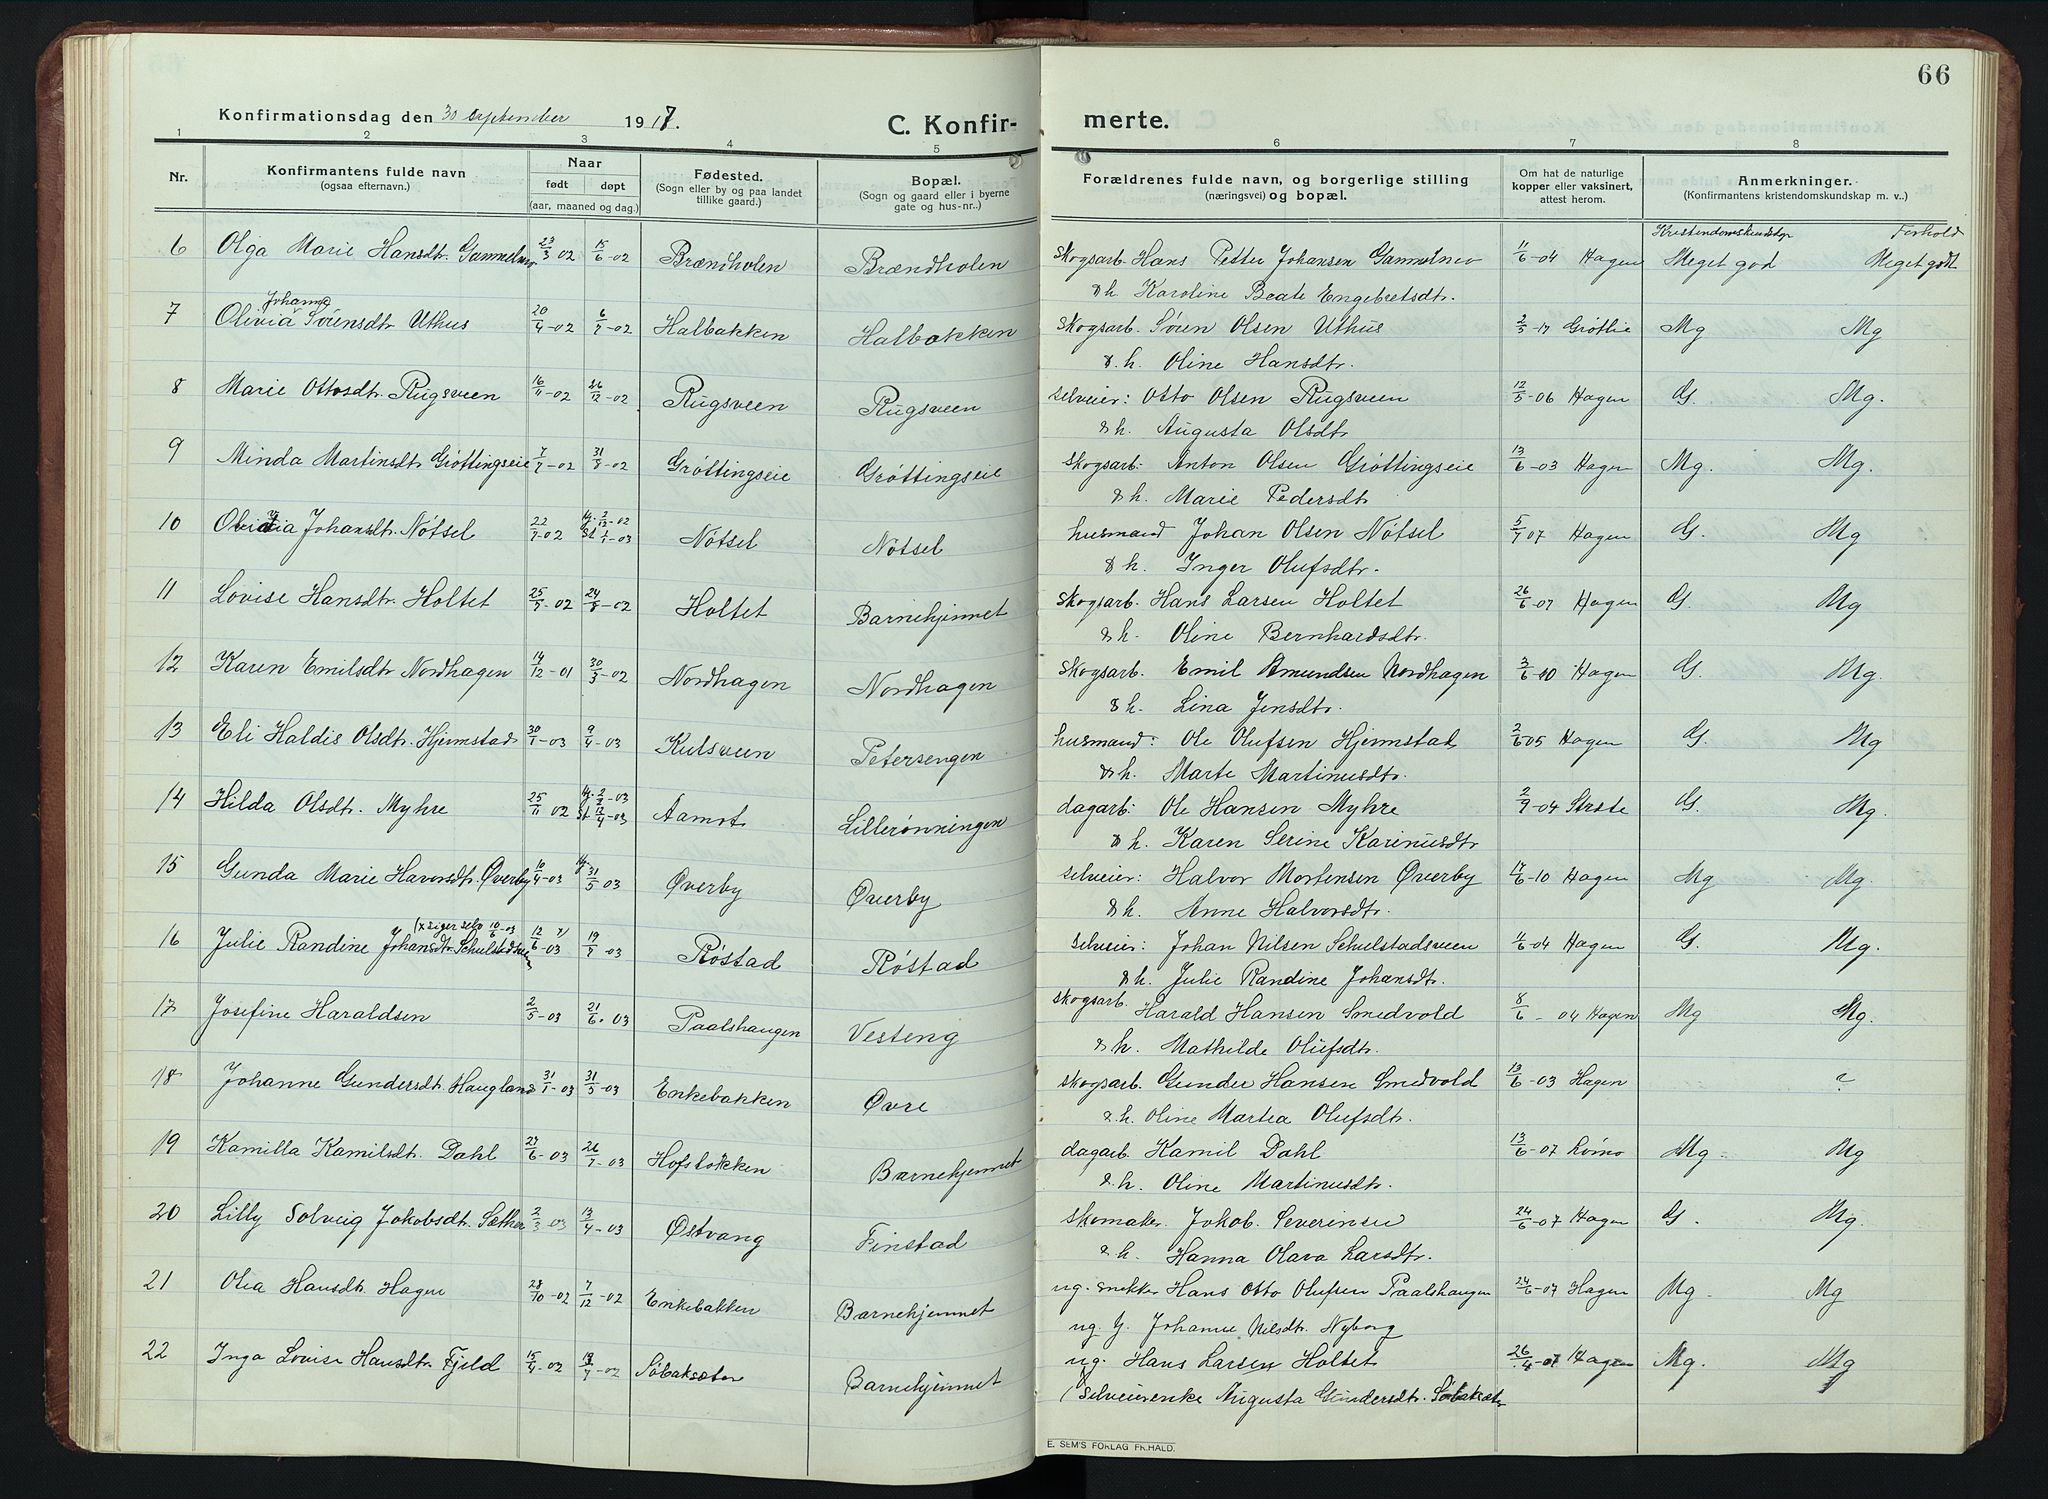 66
Konfirmationsdag den 30 september 1917.
C. Konfir- merte.
1 2 3 4 5 6 7 8
Nr.
Konfirmantens fulde navn
(ogsaa efternavn.)
Naar
født døpt
(aar, maaned og dag.)
Fødested.
(Sogn eller by og paa landet
tillike gaard.)
Bopæl.
(Sogn og gaard eller i byerne
gate og hus-nr.)
Forældrenes fulde navn, og borgerlige stilling
(næringsvei) og bopæl.
Om hat de naturlige
kopper eller vaksinert,
attest herom.
Anmerkninger.
(Konfirmantens kristendomskundskap m. v.)
Kristendomskundskap Forhold
6 Olga Marie Hansdtr. Gammelmo 23/3 02 15/6-02 Brændholen Brændholen Skogsarb. Hans Petter Johansen Gammelmo 11/6-04 Hagen Meget god Meget godt
& h. Karoline Beate Engebretsdtr.
Johanna
7 Olivia Sørensdtr Uthus 20/4-02 6/7-02 Halbakken Halbakken Skogsarb. Søren Olsen Uthus 2/5-17 Grøtlie Mg Mg
& h. Oline Hansdtr.
8 Marie Ottosdtr. Rugsveen 16/11-02 26/12-02 Rugsveen Rugsveen selveier: Otto Olsen Rugsveen 12/5-06 Hagen G. Mg.
& h. Augusta Olsdtr
9 Minda Martinsdtr Grøttingseie 7/7-02 31/8-02 Grøttingseie Grøttingseie Skogsarb. Anton Olsen Grøttingseie 13/6-03 Hagen Mg. Mg.
& h. Marie Pedersdtr
10 Johansdtr. Nøtsel 22/7-02 Hj. 2/12-02 St 1/1-03 Nøtsel Nøtsel husmand Johan Olsen Nøtsel 5/7 07 Hagen G. Mg
& h. Inger Olufsdtr.
11 Lovise Hansdtr. Holtet 25/5-02 24/8-02 Holtet Barnehjemmet Skogsarb. Hans Larsen Holtet 26/6-07 Hagen G. Mg
& h. Oline Bernhardsdtr.
12 Karen Emilsdtr Nordhagen 14/12-01 30/3-02 Nordhagen Nordhagen Skogsarb. Emil Amundsen Nordhagen 3/6-10 Hagen G. Mg.
& h. Lina Jensdtr.
13 Eli Haldis Olsdtr. Hjemstad 30/1-03 9/4-03 Kulsveen Petersengen husmand: Ole Olufsen Hjemstad 2/6 05 Hagen G. Mg
& h. Marte Martinusdtr.
14 Hilda Olsdtr. Myhre 25/11 02 Hj. 2/2-03 St 12/4-03 Aamot Lillerønningen dagarb: Ole Hansen Myhre 2/9-04 Strøte G. Mg.
& h. Karen Serine Karinusdtr
15 Gunda Marie Havorsdtr. Øverby 10/4-03 Hj. 31/5-03 Øverby Øverby selveier: Halvor Mortensen Øverby 17/6-10 Hagen Mg Mg.
& h. Anne Halvorsdtr.
(x siger selv 10/6-03
16 Julie Randine Johansdtr. Schulstadsveen 12/6-03 x) 19/7-03 Røstad Røstad selveier: Johan Nilsen Schulstadsveen 11/6-04 Hagen G. Mg.
& h. Julie Randine Johansdtr.
17 Josefine Haraldsen 2/5-03 21/6-03 Paalshaugen Vesteng Skogsarb. Harald Hansen Smedvold 8/6-04 Hagen Mg Mg.
& h. Mathilde Olufsdtr.
18 Johanne Gundersdtr. Haugland 31/1-03 31/5-03 Enkebakken Øvre Skogsarb. Gunder Hansen Smedvold 13/6-03 Hagen ?
& h. Oline Martea Olufsdtr.
19 Kamilla Kamilsdtr. Dahl 27/6-03 26/7-03 Hofsbakken Barnehjemmet dagarb. Kamil Dahl 13/6-07 Lømo Mg. Mg
& h. Oline Martinusdtr.
20 Lilly Solveig Jakobsdtr. Sæther 2/3-03 13/4-03 Østvang Finstad skomaker Jakob Severinsen 24/6-07 Hagen G. Mg.
& h. Hanna Olava Larsdtr.
21 Olea Hansdtr. Hagen 28/10-02 7/12-02 Enkebakken Barnehjemmet ug. snekker Hans Otto Olufsen Paalshaugen 24/6-07 Hagen Mg. Mg
ug. Johanne Nilsdtr. Nyborg
22 Inga Lovise Hansdtr Fjeld 15/4-02 /7-02 Søbaksæter Barnehjemmet ug. Hans Larsen Holtet 26/4-07 Hagen Mg. Mg
( selveierenke Augusta Gundersdtr. Søbaksæter
E. SEM'S FORLAG FR.HALD.